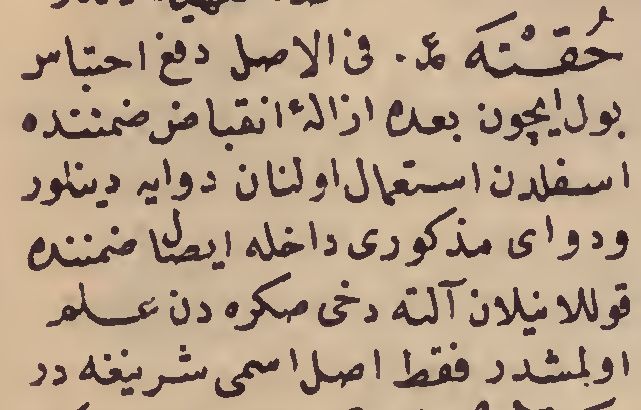 حُقْنَه ع. فى الاصل دفع احتباس
بول ايچون بعده ازالهٔ انقباض ضمننده
اسفلدن استعمال اولنان دوايه دينلور
ودواى مذكورى داخله ايصال ضمننده
قوللانيلان آلته دخى صكره دن علم
اولمشدر فقط اصل اسمى شرينغه در